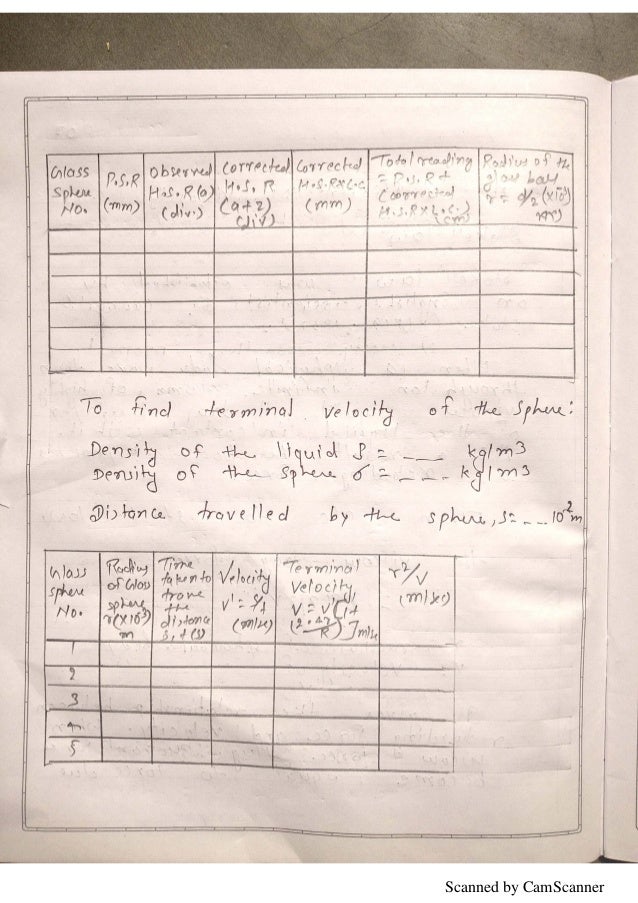 Glass Sphere No.
P.S.R (mm)
Observed H.S.R (a) (div.)
Corrected H.S.R (a+z) (div)
Corrected H.S.R x L.C (mm)
Total reading = P.S.R + (corrected H.S.R x L.C.) (cm)
Radius of the r = d/2
To find terminal velocity of the sphere:
Density of the liquid ρ = --- kg/m3
Density of the sphere σ = ---. kg/m3
Distance travelled by the sphere, S= --- 10-2m
Glass sphere No.
Radius of Glass sphere r(x103) m
Time taken to trave the distance s, t(s)
Velocity v' = s/t (m/se)
Terminal Velocity V = v'[1+ (2.4r/R)] m/se
r2/V (m/sec)
1
2
3
4
5
Scanned by CamScanner